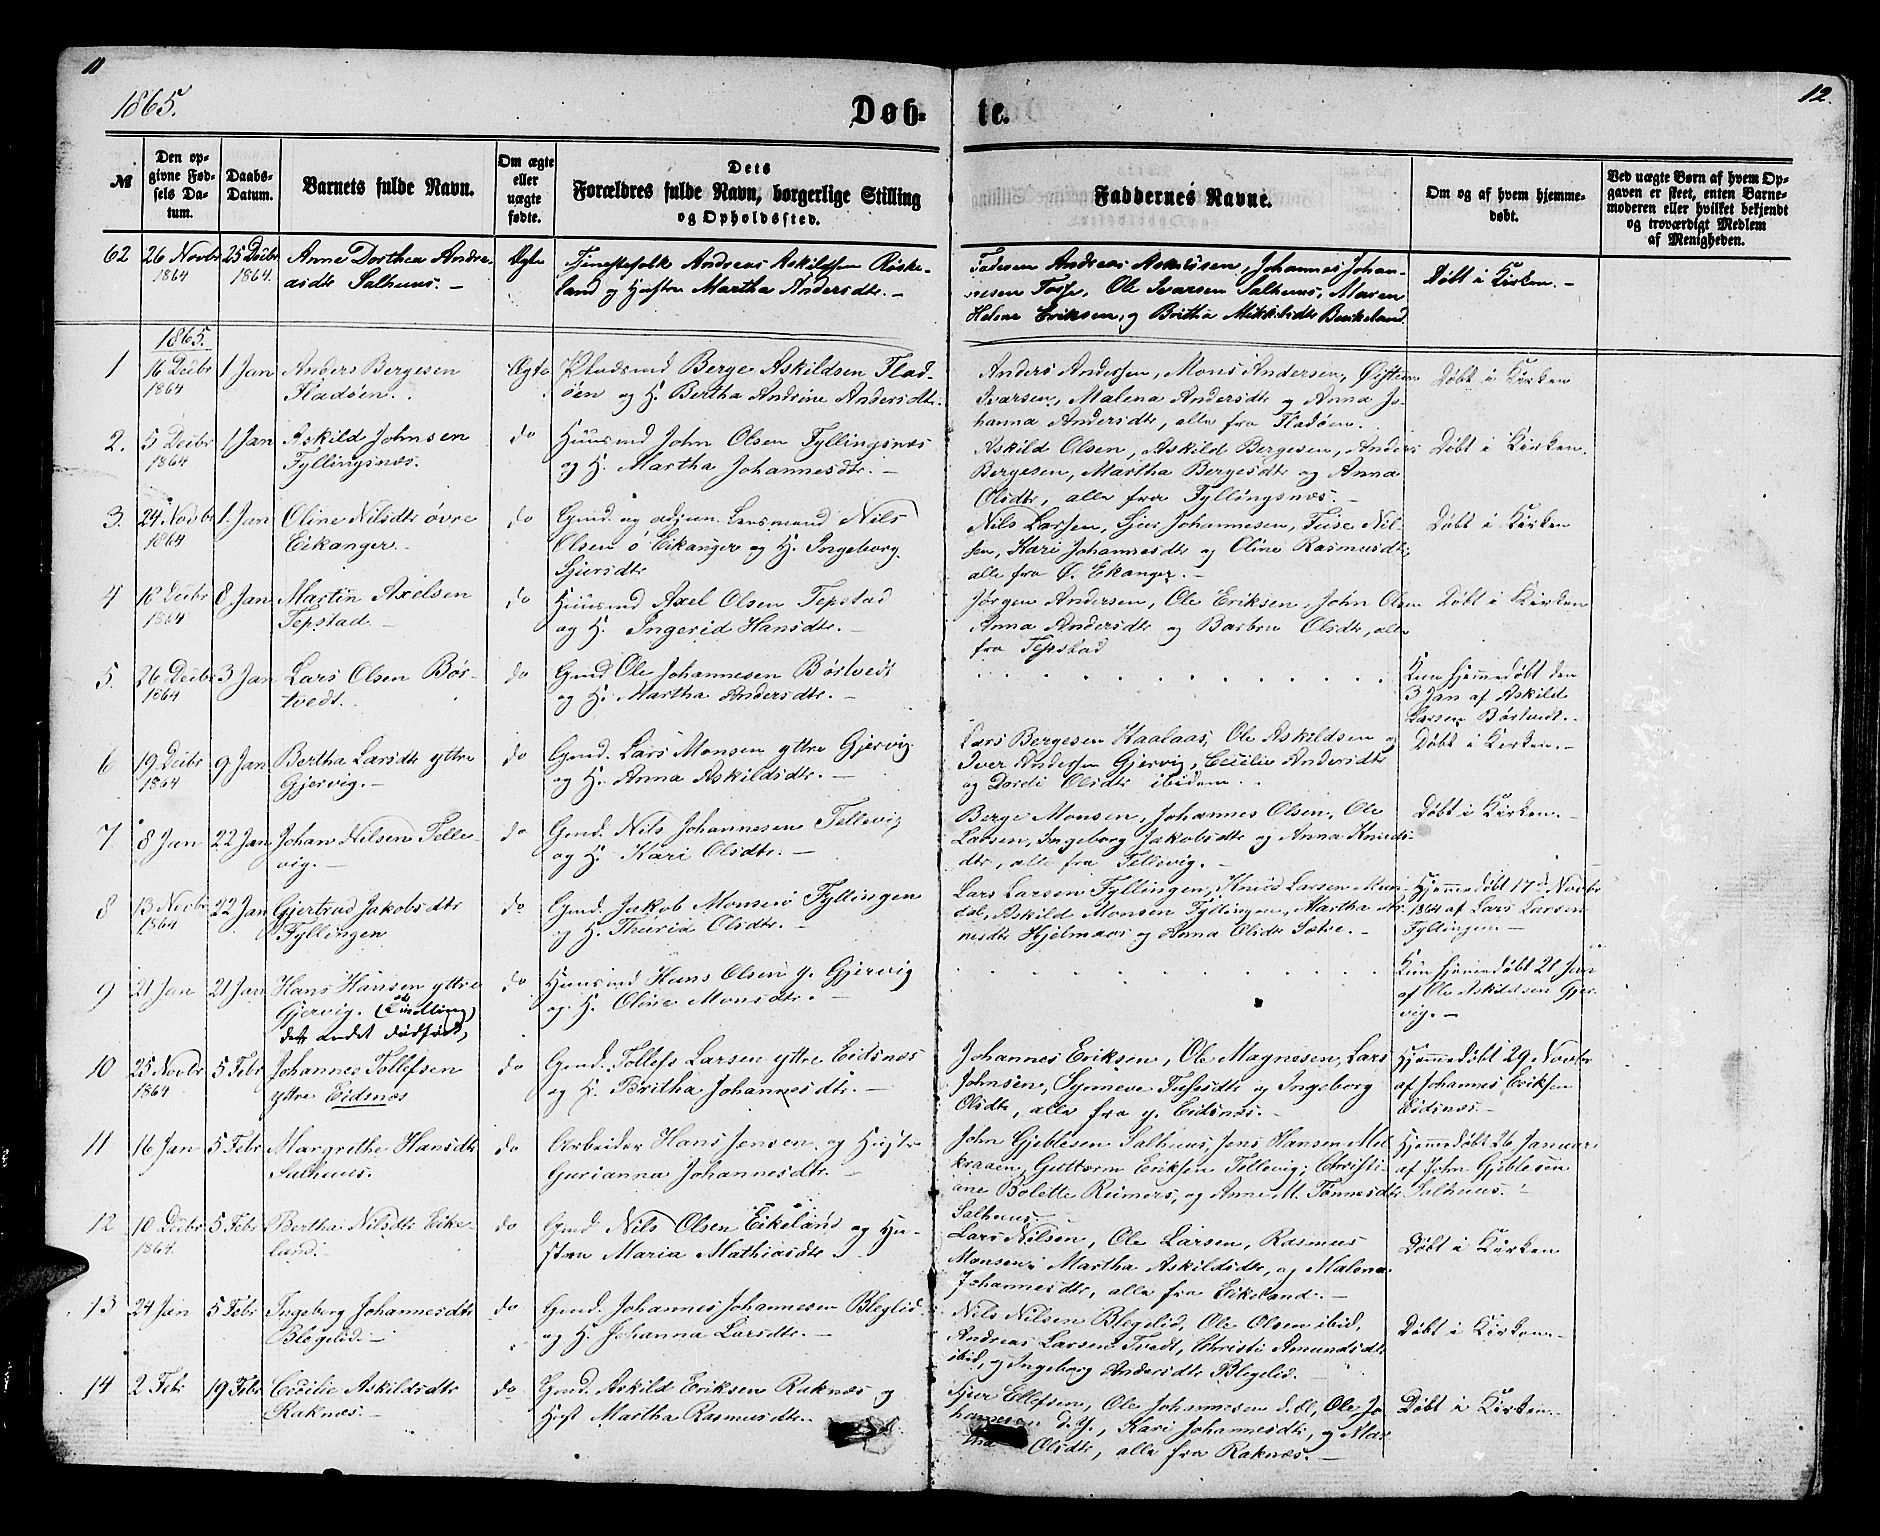 11
12.
1865.
Døb-
te.
№
Den op-
givne Fød-
sels Da-
tum.
Daabs-
Datum.
Barnets fulde Navn.
Om ægte
eller
uægte
fødte.
Dets
Forældres fulde Navn, borgerlige Stilling
og Opholdssted.
Faddernes Navne.
Om og af hvem hjemme-
døbt.
Ved uægte Børn af hvem Op-
gaven er skeet, enten Barne-
moderen eller hvilket bekjendt
og troværdigt Medlem
af Menigheden.
62 26 Novbr 1864 25 Decbr 1864.
Anne Dorthea Andre-
asdtr Salhuus. —
Ægte
Tjenestefolk Andreas Askildsen Röske-
land og Hustru Martha Andersdtr. —
Faderen Andreas Askildsen, Johannes Johan-
nesen Tosse, Ole Ivarsen Salhuus, Maren
Helene Eriksen, og Britha Mikkelsdtr Birkeland.
Døbt i Kirken. —
1865.
1 16 Decbr 1864 1 Jan
Anders Bergesen
Fladøen.
Ægte
Pladsmd Berge Askildsen Flad-
øen og H. Bertha Andrine Andersdtr.
Anders Andersen, Mons Andersen, Øisten
Ivarsen, Malena Andersdtr og Anna Jo-
hanna Andersdtr, alle fra Fladøen.
Døbt i Kirken
2. 5 Decbr 1864 1 Jan
Askild Johnsen
Fyllingsnæs.
do
Huusmd John Olsen Fyllingsnæs
og H. Martha Johannesdtr. —
Askild Olsen, Askild Bergesen, Anders
Bergesen, Martha Bergesdtr og Anna
Olsdtr, alle fra Fyllingsnæs. —
Døbt i Kirken.
3. 24 Novbr 1864 1. Jan
Oline Nilsdtr øvre
Eikanger. —
do
Gmd. og adjun. Lensmand Nils
Olsen ø Eikanger og H. Ingeborg
Sjursdtr
Nils Larsen, Sjur Johannesen, Tuse Nil-
sen, Kari Johannesdtr og Oline Rasmusdtr,
alle fra Ø. Ekanger. —
Døbt i Kirken
4 18 Decbr 1864 8 Jan
Martin Axelsen
Tepstad —
do
Huusmd Axel Olsen Tepstad
og H. Ingerid Hansdtr. —
Jørgen Andersen, Ole Eriksen, John Olsen
Anna Andersdtr og Barbro Olsdtr, alle
fra Tepstad
Døbt i Kirken
5. 26 Decbr 1864 3 Jan
Lars Olsen Bör-
tvedt.
do
Gmd Ole Johannesen Börtvedt
og H. Martha Andersdtr. —
Kun hjemmedöbt den
3 Jan af Askild
Larsen Börtvedt. —
6 19 Decbr 1864 9 Jan
Bertha Larsdtr yttre
Gjervig. —
do
Gmd. Lars Monsen yttre Gjervig
og H. Anna Askildsdtr. —
Lars Bergesen Kaalaas, Ole Askildsen og
Iver Andersen Gjervig, Cecilie Andersdtr
og Dordi Olsdtr ibidem.
Døbt i Kirken. —
7 8 Jan 22 Jan
Johan Nilsen Telle-
vig. —
do
Gmd. Nils Johannesen Tellevig
og H. Kari Olsdtr. —
Berge Monsen, Johannes Olsen, Ole
Larsen, Ingeborg Jakobsdtr og Anna Knuds-
dtr, alle fra Tellevig. —
Døbt i Kirken. —
8 13 Novbr 1864 22 Jan
Gjertrud Jakobsdtr
Fyllingen
do
Gmd. Jakob Monsen Fyllingen
og H. Thuria Olsdtr. —
Lars Larsen Fyllingen, Knud Larsen Mun-
dal, Askild Monsen Fyllingen, Martha Ar-
nesdtr Hjelmaas og Anna Olsdtr Sætre. —
Hjemmedöbt 17d Novbr
1864 af Lars Larsen
Fyllingen. —
9 21 Jan 21 Jan
Hans Hansen yttre
Gjervig. (Tvilling,
det andet dødfødt,
do
Huusmd Hans Olsen y. Gjervig
og H. Oline Monsdtr. —
Kun hjemmedöbt 21 Jan
af Ole Askildsen Gjer-
vig. —
10 25 Novbr 1864 5 Febr
Johannes Tollefsen
yttre Eidsnæs
do
Gmd. Tollef Larsen yttre Eidsnæs
og H. Britha Johannesdtr. —
Johannes Eriksen, Ole Magnesen, Lars
Johnsen, Synneve Tufesdtr og Ingeborg
Olsdtr, alle fra y. Eidsnæs. —
Hjemmedöbt 29 Novbr
af Johannes Eriksen
Eidsnæs. —
11 16 Jan 5 Febr
Margrethe Hansdtr
Salhuus.
do
Arbeider Hans Jensen og Hustr
Gurianna Johannesdtr. —
John Gjeblesen Salhuus, Jens Hansen Mel
kraaen, Guttorm Eriksen Tellevig, Christi-
ane Bolette Reimers, og Anne M. Tønnesdtr
Salhuus. —
Hjemmedöbt 26 Januar
af John Gjeblesen
Salhuus. —
12 10 Decbr 1864. 5 Febr
Bertha Nilsdtr Eike-
land. —
do
Gmd Nils Olsen Eikeland og Hu-
struen Maria Mathiasdtr. —
Lars Nilsen, Ole Larsen, Rasmus
Monsen, Martha Askildsdtr, og Malena
Johannesdtr, alle fra Eikeland. —
Døbt i Kirken
13 24 Jan 5 Febr
Ingeborg Johannesdtr
Blegelid. —
do
Gmd. Johannes Johannesen Bleglid
og H. Johanna Larsdtr. —
Nils Nilsen Blegelid, Ole Olsen ibid,
Andreas Larsen Tvedt, Christi Amundsdtr
ibid, og Ingeborg Andersdtr Blegelid. —
Døbt i Kirken. —
14 2 Febr 19 Febr
Cecilie Askildsdtr
Raknæs. —
do
Gmd. Askild Eriksen Raknæs og
Hust Martha Rasmusdtr. —
Sjur Ellefsen, Ole Johannesen d. æl, Ole Jo
hannesen d. y., Kari Johannesdtr, og Mar
tha Olsdtr, alle fra Raknæs. —
Døbt i Kirken. —